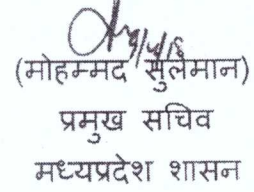 (मोहम्मद सुलेमान)
प्रमुख सचिव
मध्यप्रदेश शासन